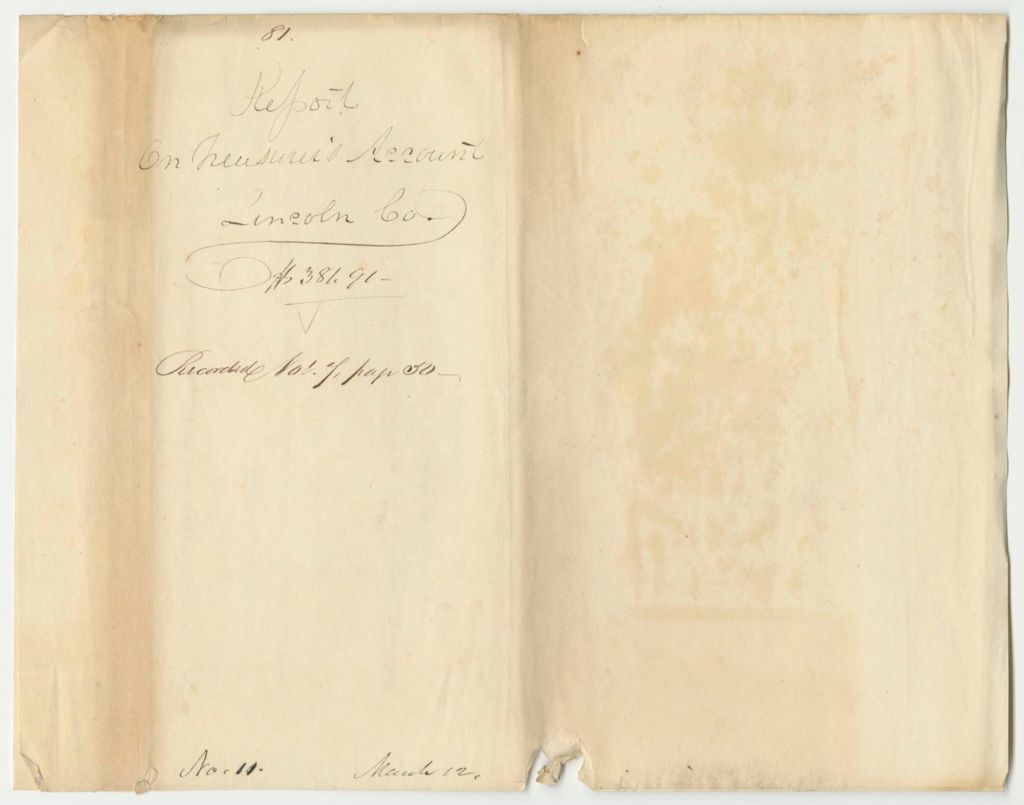 81.
Report
On Treasurer's Account
Lincoln Co.
$381.91-
Recorded Vol. 7, page 30-
No. 11. March 12.